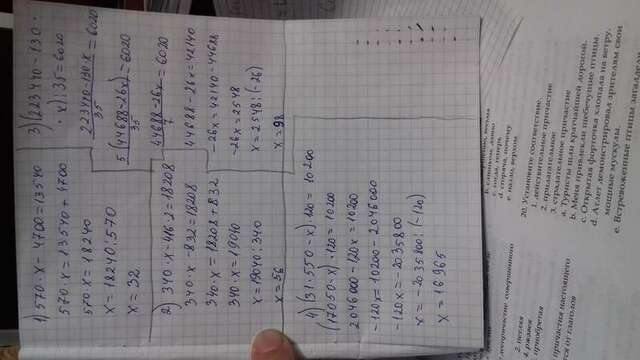 1) 570 · x - 4700 = 13540
570 · x = 13540 + 4700
570 · x = 18240
x = 18240 : 570
x = 32
2) 340 · x - 416 · 2 = 18208
340 · x - 832 = 18208
340 · x = 18208 + 832
340 · x = 19040
x = 19040 : 340
x = 56
3) (223440 - 130 ·
· x) : 35 = 6020
223440 - 130 · x / 35 = 6020
5 (44688 - 26x) / 35 = 6020
44688 - 26x / 7 = 6020
44688 - 26x = 42140
-26x = 42140 - 44688
-26x = 2548
x = 2548 : (-26)
x = 98
4) (31 · 550 - x) · 120 = 10200
(17050 - x) · 120 = 10200
2046000 - 120x = 10200
-120x = 10200 - 2046000
-120x = -2035800
x = -2035800 : (-120)
x = 16965
деепричастие совершенного
2. петляя
4. ржавея
приобретая
причастия настоящего
от глаголов
b. слишком, давно
c. тогда, теперь
d. сгоряча, почему
e. назло, верхом
20. Установите соответствие.
1. действительное причастие
2. прилагательное
3. страдательное причастие
a. Туристы шли кратчайшей дорогой.
b. Меня привлекли щебечущие птицы.
c. Открытая форточка хлопала на ветру.
d. Атлет демонстрировал зрителям свои
мощные мускулы.
e. Встревоженные птицы загалдели